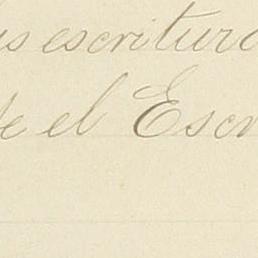 escritura
el Escr